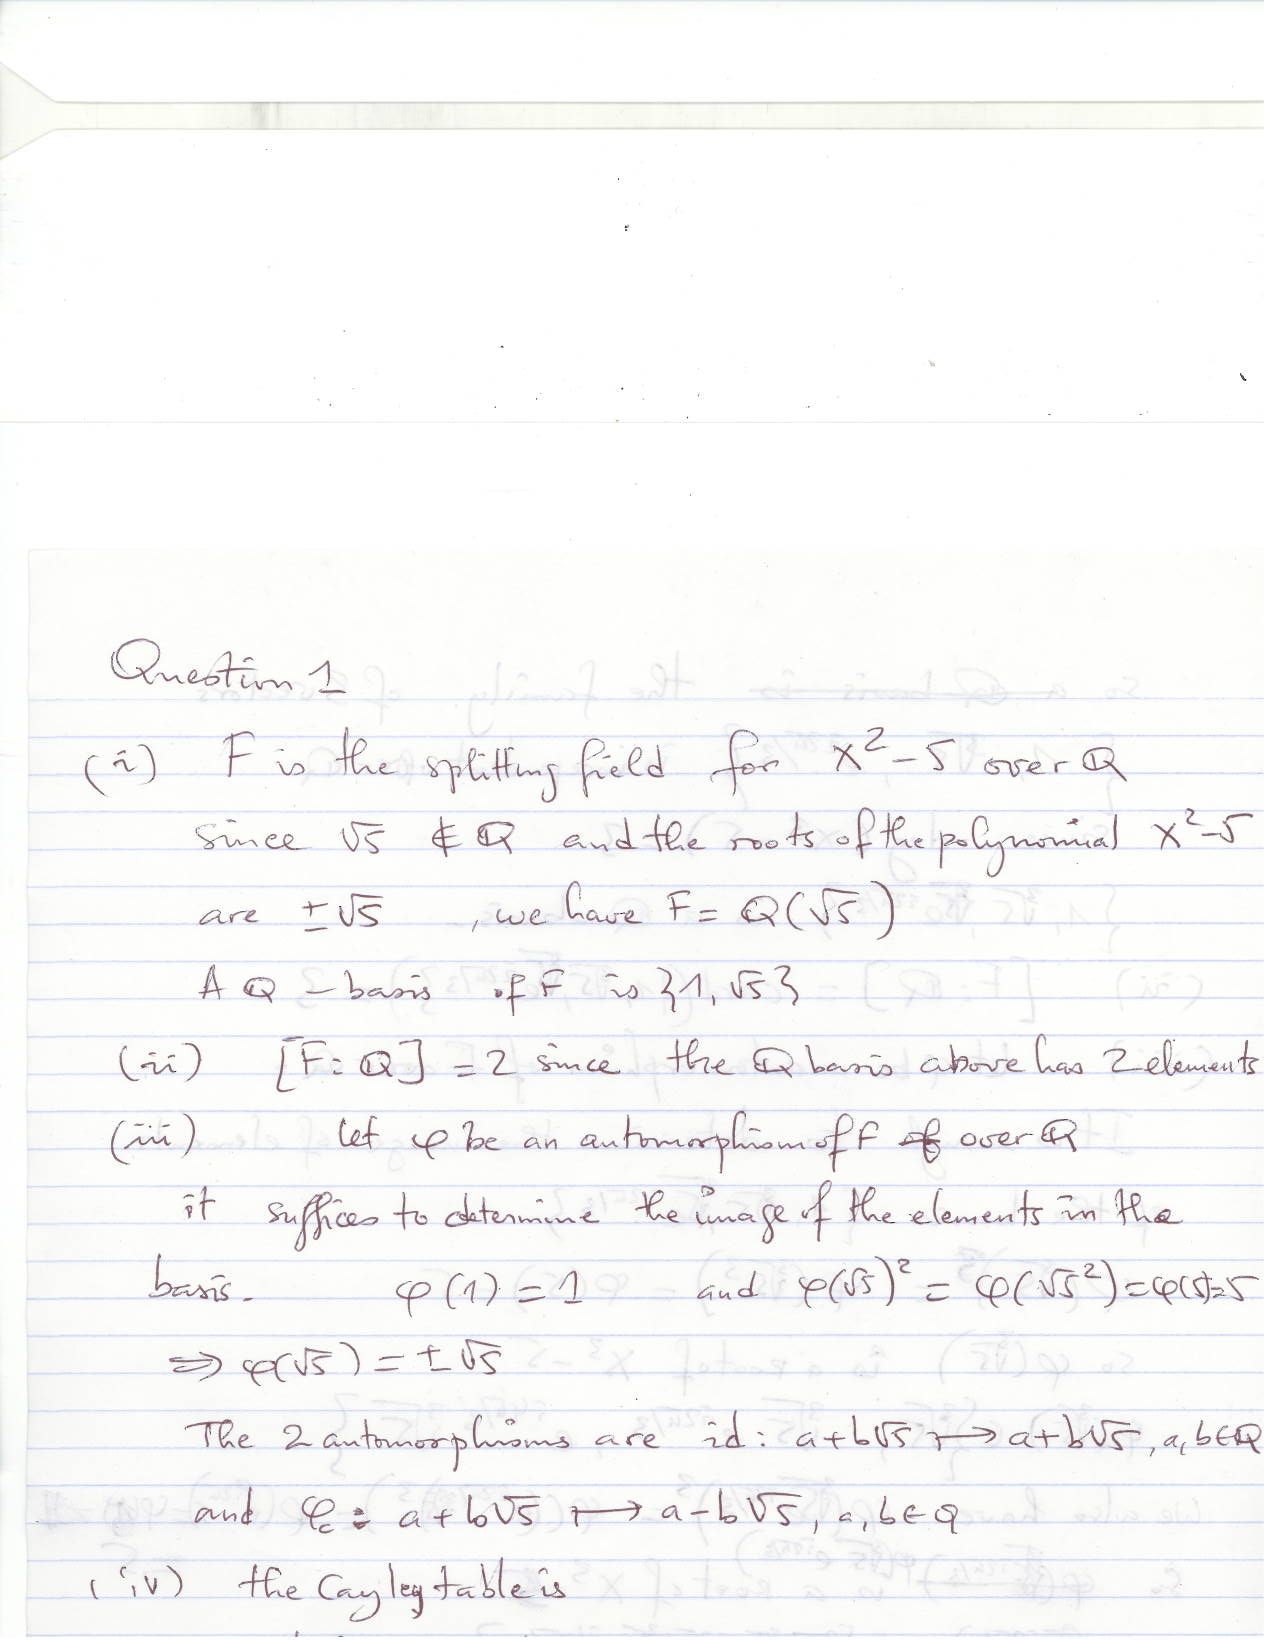 Question 1
(i) F is the splitting field for x²-5 over ℚ
since √5 ∉ ℚ and the roots of the polynomial x²-5
are ±√5 , we have F = ℚ(√5)
A ℚ-basis of F is {1, √5}
(ii) [F:ℚ] = 2 since the ℚ basis above has 2 elements
(iii) let φ be an automorphism of F over ℚ
it suffices to determine the image of the elements in the
basis. φ(1) = 1 and φ(√5)² = φ(√5²) = φ(5)=5
⇒ φ(√5) = ±√5
The 2 automorphisms are id: a+b√5 ↦ a+b√5, a,b∈ℚ
and φ : a+b√5 ↦ a-b√5, a,b∈ℚ
(iv) the Cayley table is